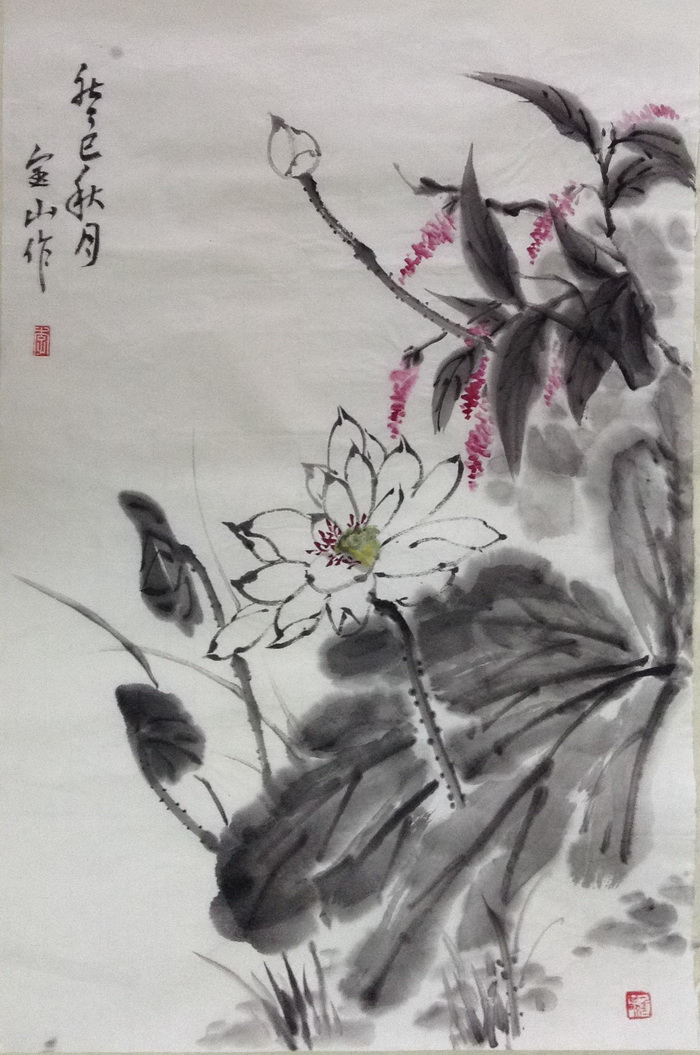 癸巳秋月
金山作